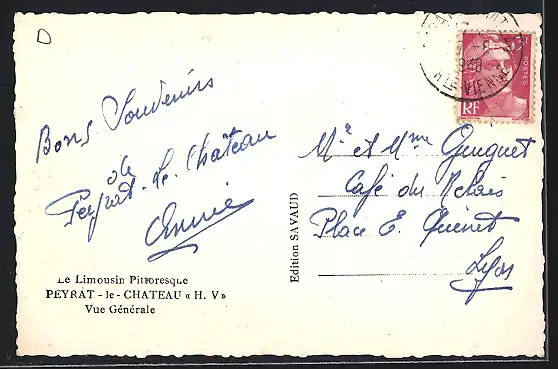 D
Bons Souvenirs
de
Peyrat-le-Château
Annie
Le Limousin Pittoresque
PEYRAT - le - CHATEAU « H. V »
Vue Générale
Edition SAVAUD
POSTES
RF
Hte VIENNE
Mr et Mme Guuguet
Café du Relais
Place E. Quinet
Lyon